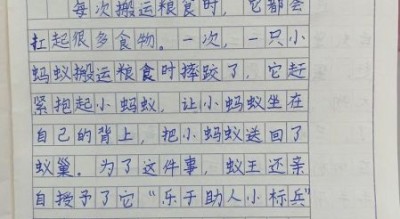 每次搬运粮食时，它都会
扛起很多食物。一次，一只小
蚂蚁搬运粮食时摔跤了，它赶
紧抱起小蚂蚁，让小蚂蚁坐在
自己的背上，把小蚂蚁送回了
蚁巢。为了这件事，蚁王还亲
自授予了它“乐于助人小标兵”